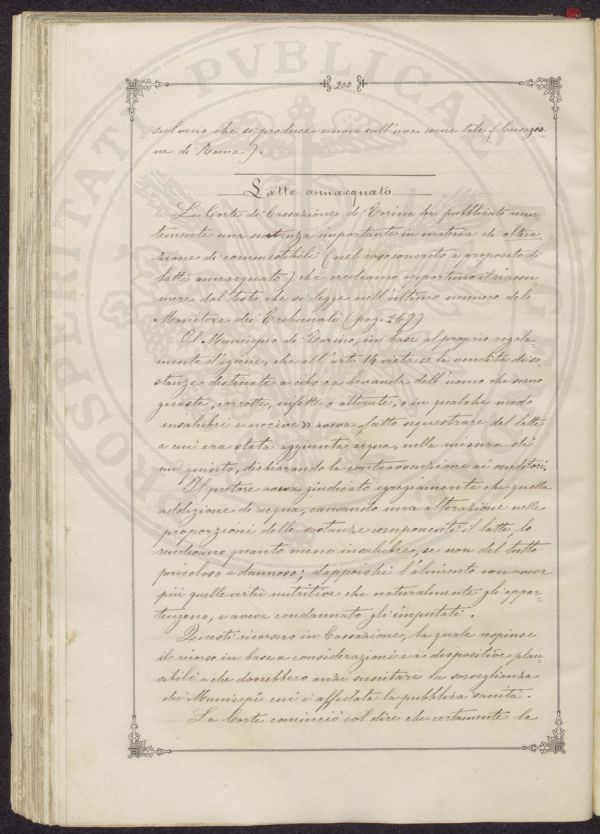 200
sul vino che si produce e non sull'uva come tale (Cassazio-
ne di Roma).
Latte annacquato
La Corte di Cassazione di Torino ha pubblicato recen-
temente una sentenza importante in materia di altera-
zione di commestibili (nel caso concreto a proposito di
latte annacquato) che crediamo opportuno il riassu-
mere dal testo che si legge nell'ultimo numero del
Monitore dei Tribunali (pag. 247)
Il Municipio di Torino, in base al proprio regola-
mento d'igiene, che all'art. 14 vieta la vendita di so-
stanze destinate a cibo o a bevanda dell'uomo che siano
guaste, corrotte, infette o alterate, o in qualche modo
insalubri e nocive » aveva fatto sequestrare del latte
a cui era stata aggiunta acqua, nella misura di
un quinto, dichiarando la contravvenzione ai venditori.
Il pretore aveva giudicato egregiamente che quella
addizione di acqua, causando una alterazione nelle
proporzioni delle sostanze componenti il latte, lo
rendevano quanto meno insalubre, se non del tutto
pericoloso e dannoso; dappoichè l'alimento non aveva
più quelle virtù nutritive che naturalmente gli appar-
tengono, e aveva condannato gli imputati.
Questi ricorsero in Cassazione, la quale respinse
il ricorso in base a considerazioni e a dispositive plau-
sibili e che dovrebbero anzi suscitare la sorveglianza
dei Municipî cui è affidata la pubblica sanità.
La Corte cominciò col dire che certamente la
PVBLICA
HOSPITALITAT